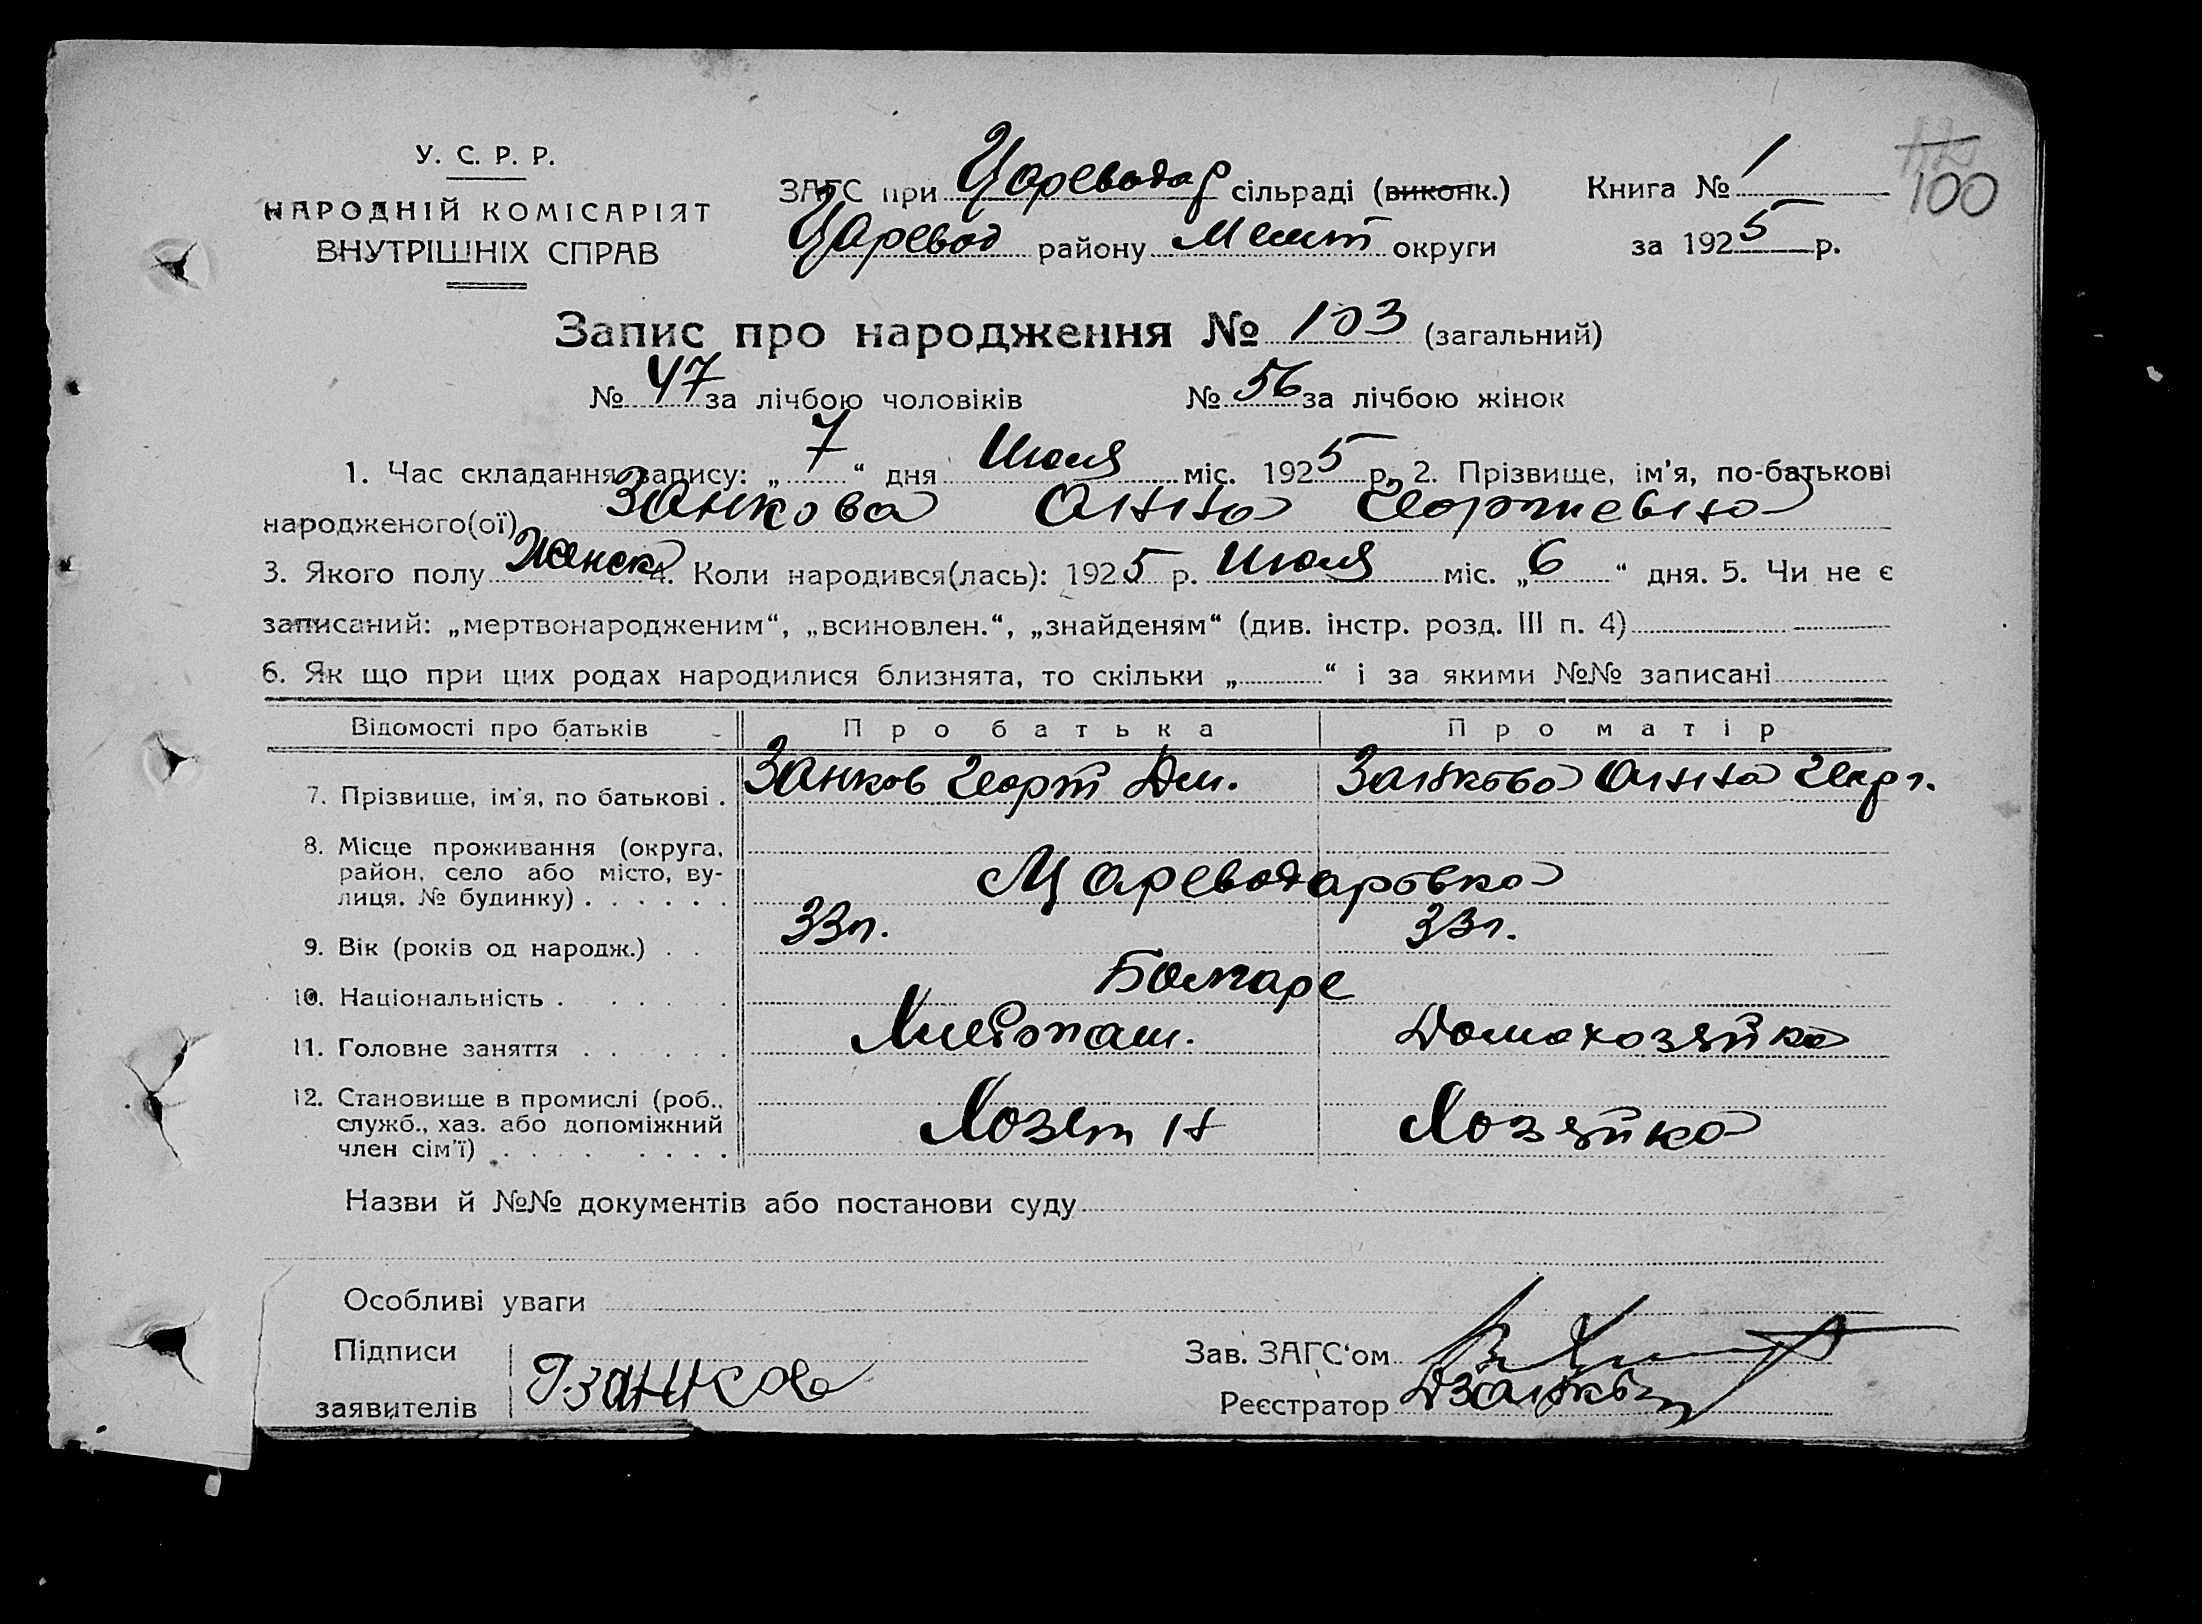 У. С. Р. Р.
НАРОДНІЙ КОМІСАРІЯТ
ВНУТРІШНІХ СПРАВ
ЗАГС при Цареводар сільраді (виконк.) Книга № 1
100
Царевод району Мелит округи за 1925 р.
Запис про народження № 103 (загальний)
№ 47 за лічбою чоловіків № 56 за лічбою жінок
1. Час складання запису: „7“ дня Июля міс. 1925 р. 2. Прізвище, ім'я, по-батькові
народженого(ої) Занкова Анна Георгиевна
3. Якого полу Женск 4. Коли народився(лась): 1925 р. Июля міс. „6“ дня. 5. Чи не є
записаний: „мертвонародженим“, „всиновлен.“, „знайденям“ (див. інстр. розд. III п. 4)
6. Як що при цих родах народилися близнята, то скільки „ “ і за якими №№ записані
Відомості про батьків Про батька Про матір
7. Прізвище, ім'я, по батькові . Занков Георг Дм. Занкова Анна Геор г.
8. Місце проживання (округа, район, село або місто, вулиця. № будинку) . . . . . . Цареводаровка
9. Вік (років од народж.) . . 33 л. 33 г.
10. Національність . . . . . . Болгаре
11. Головне заняття . . . . . . Хлебопаш. Домохозяйка
12. Становище в промислі (роб., служб., хаз. або допоміжний член сім'ї) . . . . . . . . Хозяин Хозяйка
Назви й №№ документів або постанови суду
Особливі уваги
Підписи
заявителів Г Занков
Зав. ЗАГС'ом
Реєстратор Д Занков